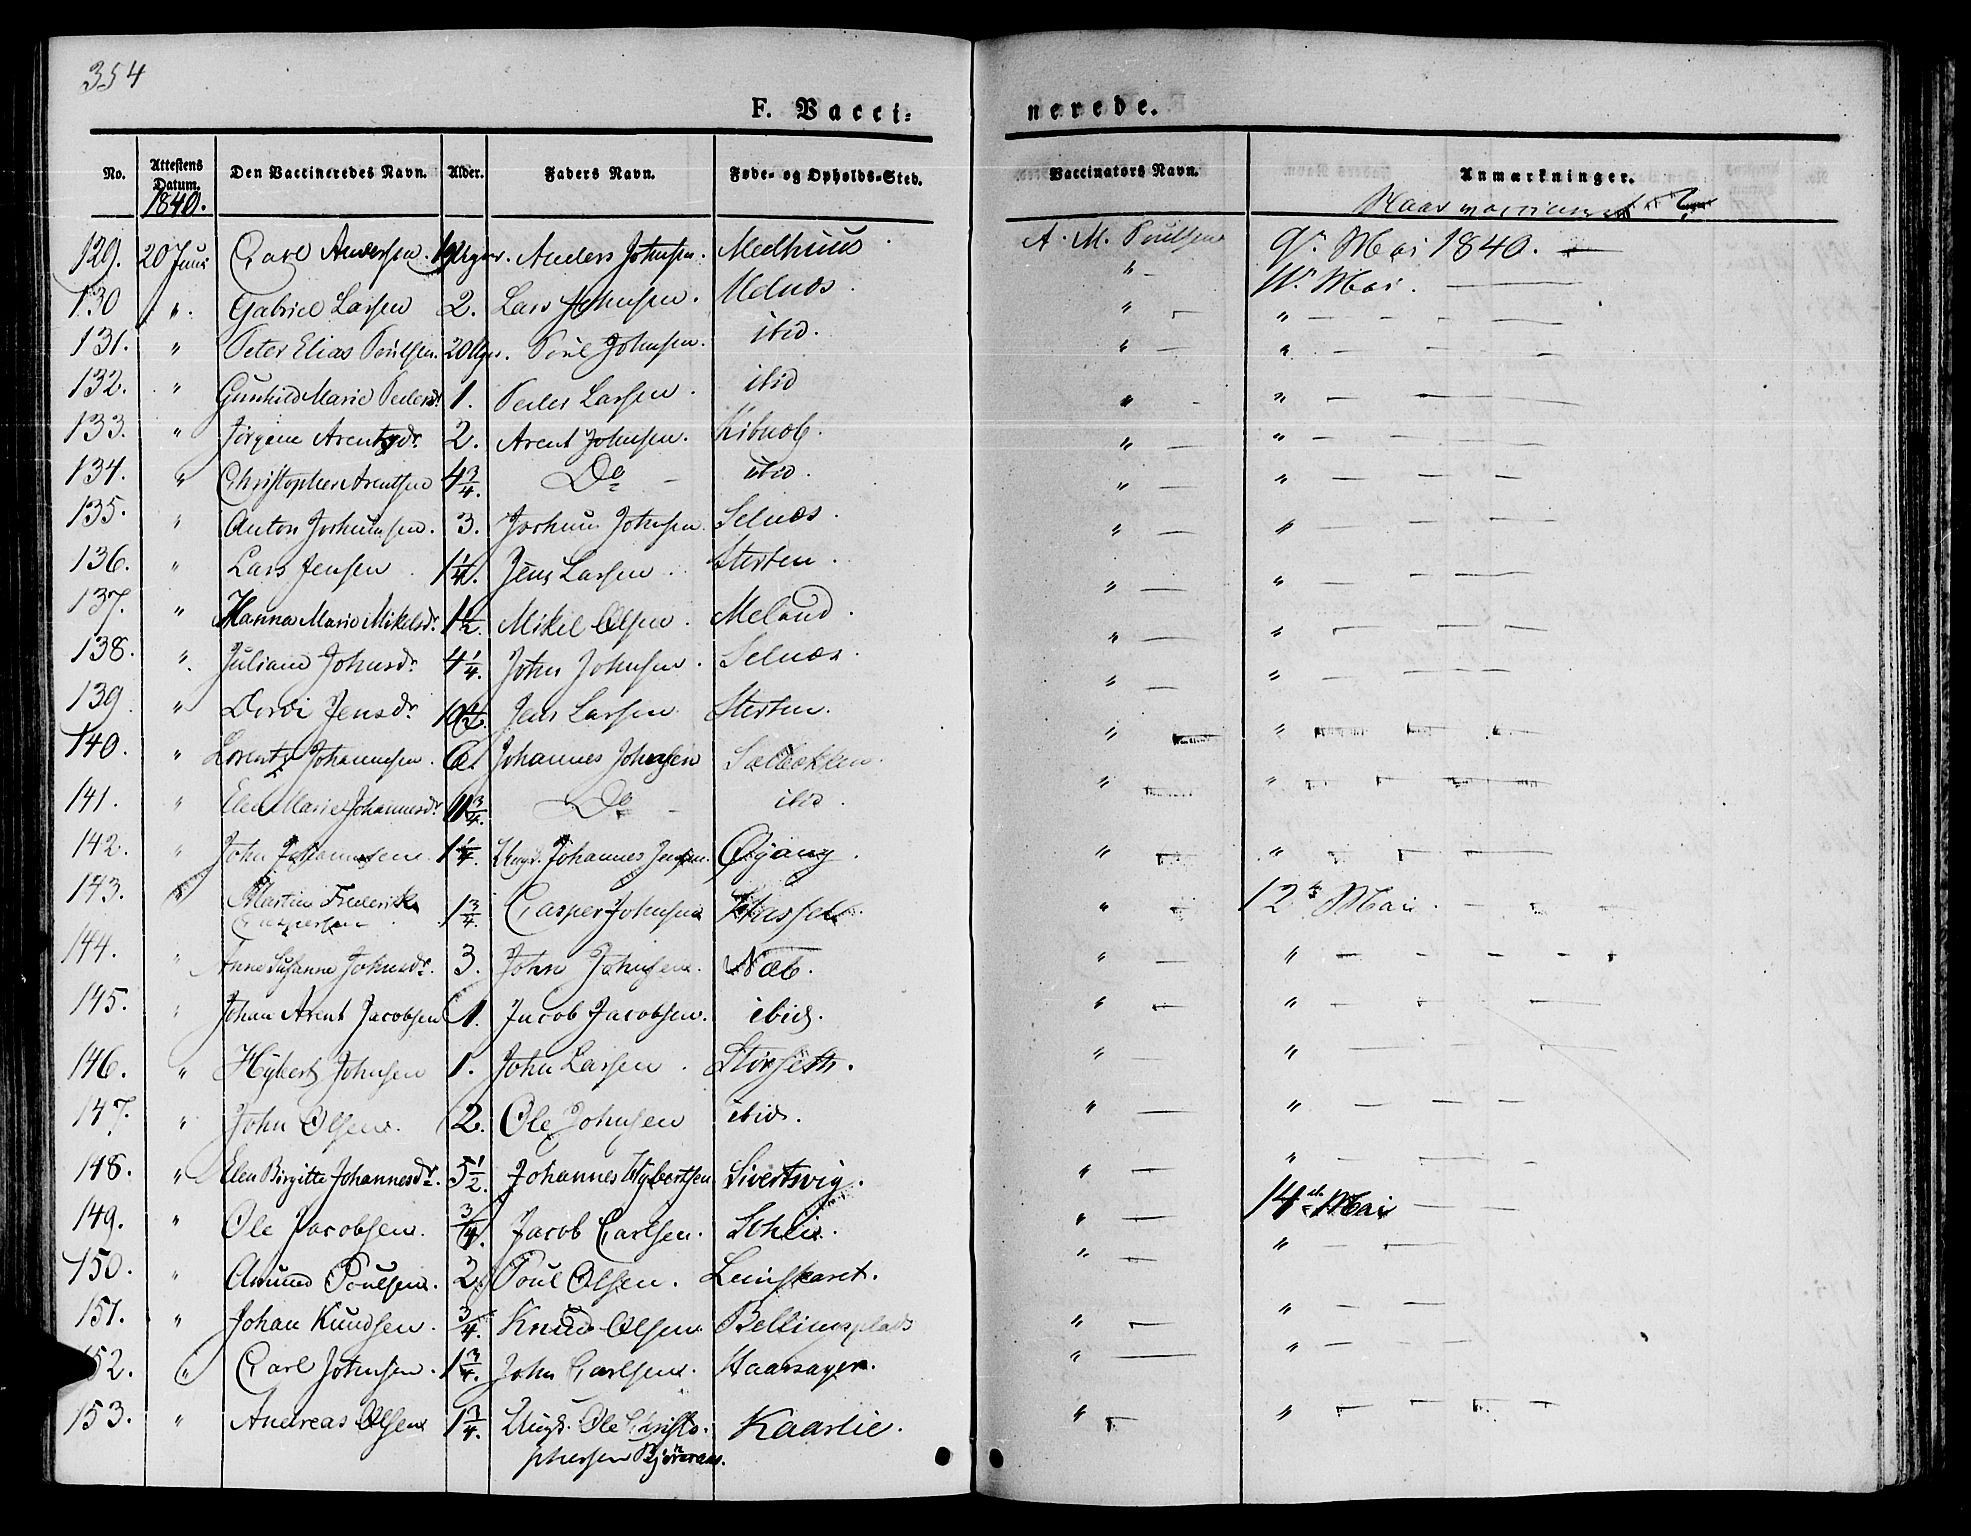 354
F. Vacci=
nerede.
No. Attestens Datum. Den Vaccineredes Navn. Alder. Faders Navn. Føde- og Opholds-Sted. Vaccinators Navn. Anmærkninger.
1840.
Naar
129. 20 Juni Carl Andersen. Anders Johnsen. Medhuus A. M. Poulsen 9de Mai 1840. —
130 ". Gabriel Larsen 2. Lars Johnsen. Melnæs. " - 11te Mai. —
131. " Peter Elias Poulsen. 20 Uger. Poul Johnsen. ibid. " — " — — — —
132. " Gunhild Marie Pedersdr. 1. Peder Larsen. ibid " — " — — —
133. " Jørgine Arentsdr. 2. Arent Johnsen. " - " — — — —
134. " Christopher Arentsen 4 3/4. Do — ibid. " — " — — — —
135. " Anton Jochumsen. 3. Jochum Johnsen. Selnæs. " — " — — — —
136. " Lars Jensen 1 1/4. Jens Larsen. Sterten. " — " — — —
137. " Hanna Marie Mikelsdr. 1 1/2. Mikel Olsen. Meland. " — " — — —
138. ". Juliane Johnsdr. 4 1/4. John Johnsen. Selnæs. " — " — — —
139 " Dordi Jensdr. 10 1/2. Jens Larsen. Sterten. " — " — — —
140. " Lorents Johannesen. 6. Johannes Johnsen " — " — — —
141. " Elen Marie Johannesdr. 11 3/4. Do — ibid. " — " — — —
142. " John Johannesen. 1 1/4. Ungk. Johannes Jensen. Øyang. " — " — — —
143. " Martin Frederik Caspersen 1 3/4. Casper Johnsen " — 12te Mai. — — —
144. " Anne Susanna Johnsdr. 3. John Johnsen. Næb. " — " — — — — —
145. " Johan Arent Jacobsen 1. Jacob Jacobsen. ibid. " — " — — —
146. " Hybert Johnsen 1. John Larsen. Storseth. " — " — — —
147. " John Olsen. 2. Ole Johnsen ibid. " — " — — —
148. " Elen Birgitte Johannesdr. 5 1/2. Johannes Hybertsen Sivertsvig. " — " — — —
149. " Ole Jacobsen. 3/4. Jacob Carlsen. Schei. " — 14de Mai — —
150. " Amund Poulsen. 2. Poul Olsen. Leinskaret. " — " — —
151. " Johan Knudsen. 3/4. Knud Olsen Bellingsplads " — " — —
152. " Carl Johnsen. 1 3/4. John Carlsen. Haarsager. " — " — —
153. " Andreas Olsen 1 3/4. Ungk. Ole Christo- Kaarlie. " — " — — — —
phersen Bjøraas.